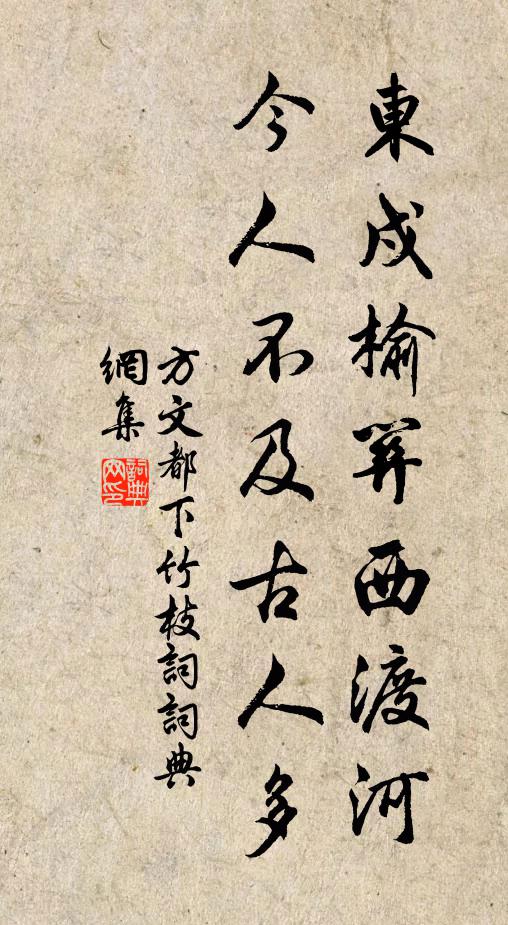 東戍榆關西渡河
今人不及古人多
方文都下竹枝詞詞典
網集
詞典網印